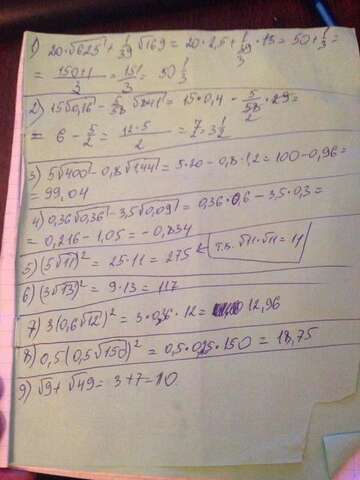 1) 20·√625 + 1/39 √169 = 20·2,5 + 1/39·13 = 50 + 1/3 =
= 150+1/3 = 151/3 = 50 1/3
2) 15√0,16 - 5/58 √841 = 15·0,4 - 5/58·29 =
= 6 - 5/2 = 12-5/2 = 7/2 = 3 1/2
3) 5√400 - 0,8√144 = 5·20 - 0,8·1,2 = 100 - 0,96 =
= 99,04
4) 0,36√0,36 - 3,5√0,09 = 0,36·0,6 - 3,5·0,3 =
= 0,216 - 1,05 = -0,834
5) (5√11)² = 25·11 = 275 ← т.к. √11·√11 = 11
6) (3√13)² = 9·13 = 117
7) 3(0,6√12)² = 3·0,36·12 = 12,96
8) 0,5(0,5√150)² = 0,5·0,25·150 = 18,75
9) √9 + √49 = 3+7 = 10